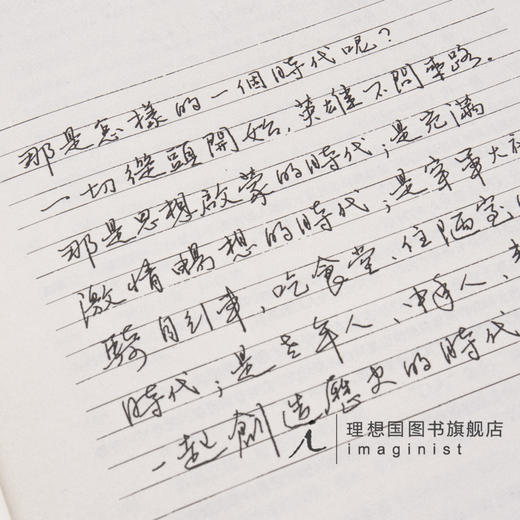 那是怎樣的一個時代呢？
一切從頭開始，英雄不問來路。
那是思想啟蒙的時代；是充滿
激情暢想的時代；是穿軍大
騎自行車、吃食堂、住陋室
時代；是老年人、中年人、
一起創造歷史的時代
理想国图书旗舰店
imaginist